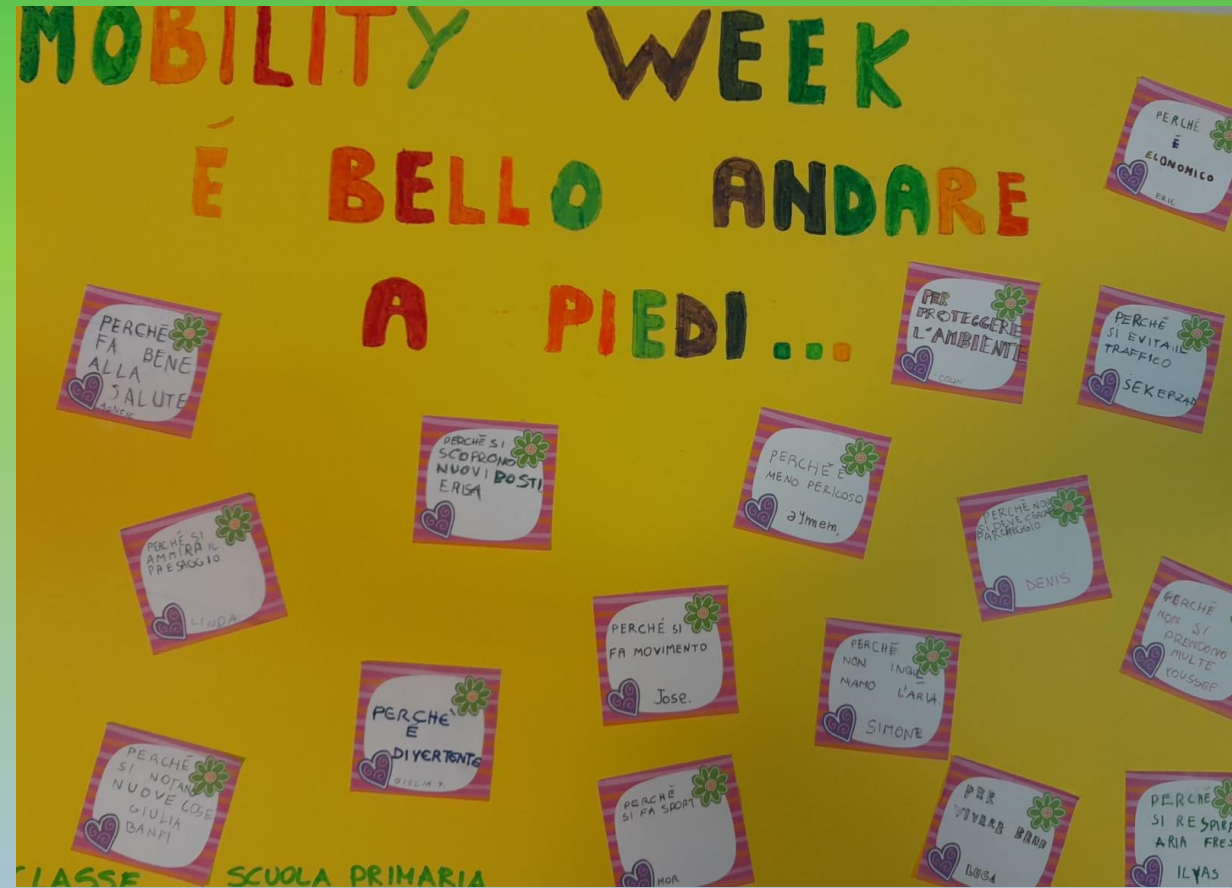 MOBILITY WEEK
É BELLO ANDARE
A PIEDI...
PERCHÉ
É
ECONOMICO
ERIC
PERCHÉ
FA BENE
ALLA
SALUTE
AGNESE
PER
PROTEGGERE
L'AMBIENTE
COLIN
PERCHÉ
SI EVITA IL
TRAFFICO
SEKERZAD
PERCHÉ SI
SCOPRONO
NUOVI POSTI
ERISA
PERCHÉ È
MENO PERICOSO
aymem,
PERCHÉ NON
SI DEVE
PARCHEGGIO
DENIS
PERCHÉ SI
AMMIRA IL
PAESAGGIO
LINDA
PERCHÉ SI
FA MOVIMENTO
Jose.
PERCHÉ
NON INQUI
NIAMO L'ARIA.
SIMONE
PERCHÉ
NON SI
PRENDONO
MULTE
YOUSSEF
PERCHE'
É
DIVERTENTE
PERCHÉ
SI NOTANO
NUOVE COSE
GIULIA
BANFI
PERCHÉ
SI FA SPORT
MOR
PER
VIVERE BENE
LUCA
PERCHÉ
SI RESPIRA
ARIA FRES
ILYAS
CLASSE SCUOLA PRIMARIA